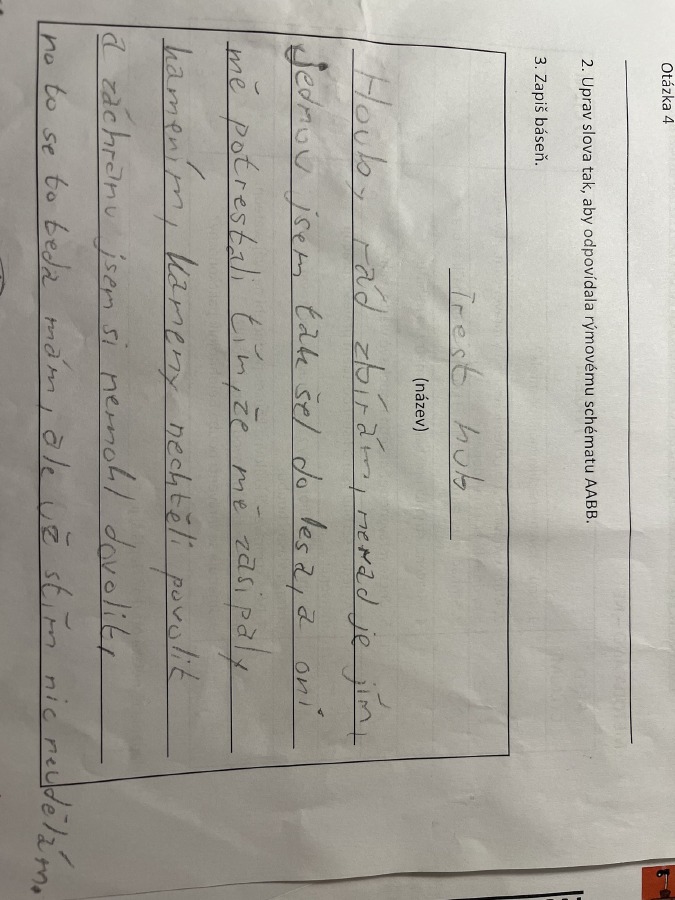 Otázka 4
2. Uprav slova tak, aby odpovídala rýmovému schématu AABB.
3. Zapiš báseň.
Trest hub
(název)
Houby rád zbírám, nerad je jím,
jednou jsem tak šel do lesa, a oni
mě potrestali tím, že mě zasipaly
kamením, kameny nechtěli povolit
a záchranu jsem si nemohl dovolit,
no to se to teda mám, ale už stím nic neudělám.